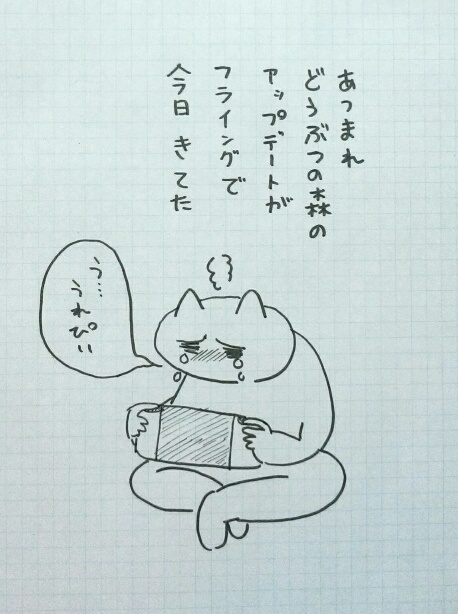 あつまれ
どうぶつの森の
アップデートが
フライングで
今日 きてた
う…
うれぴい